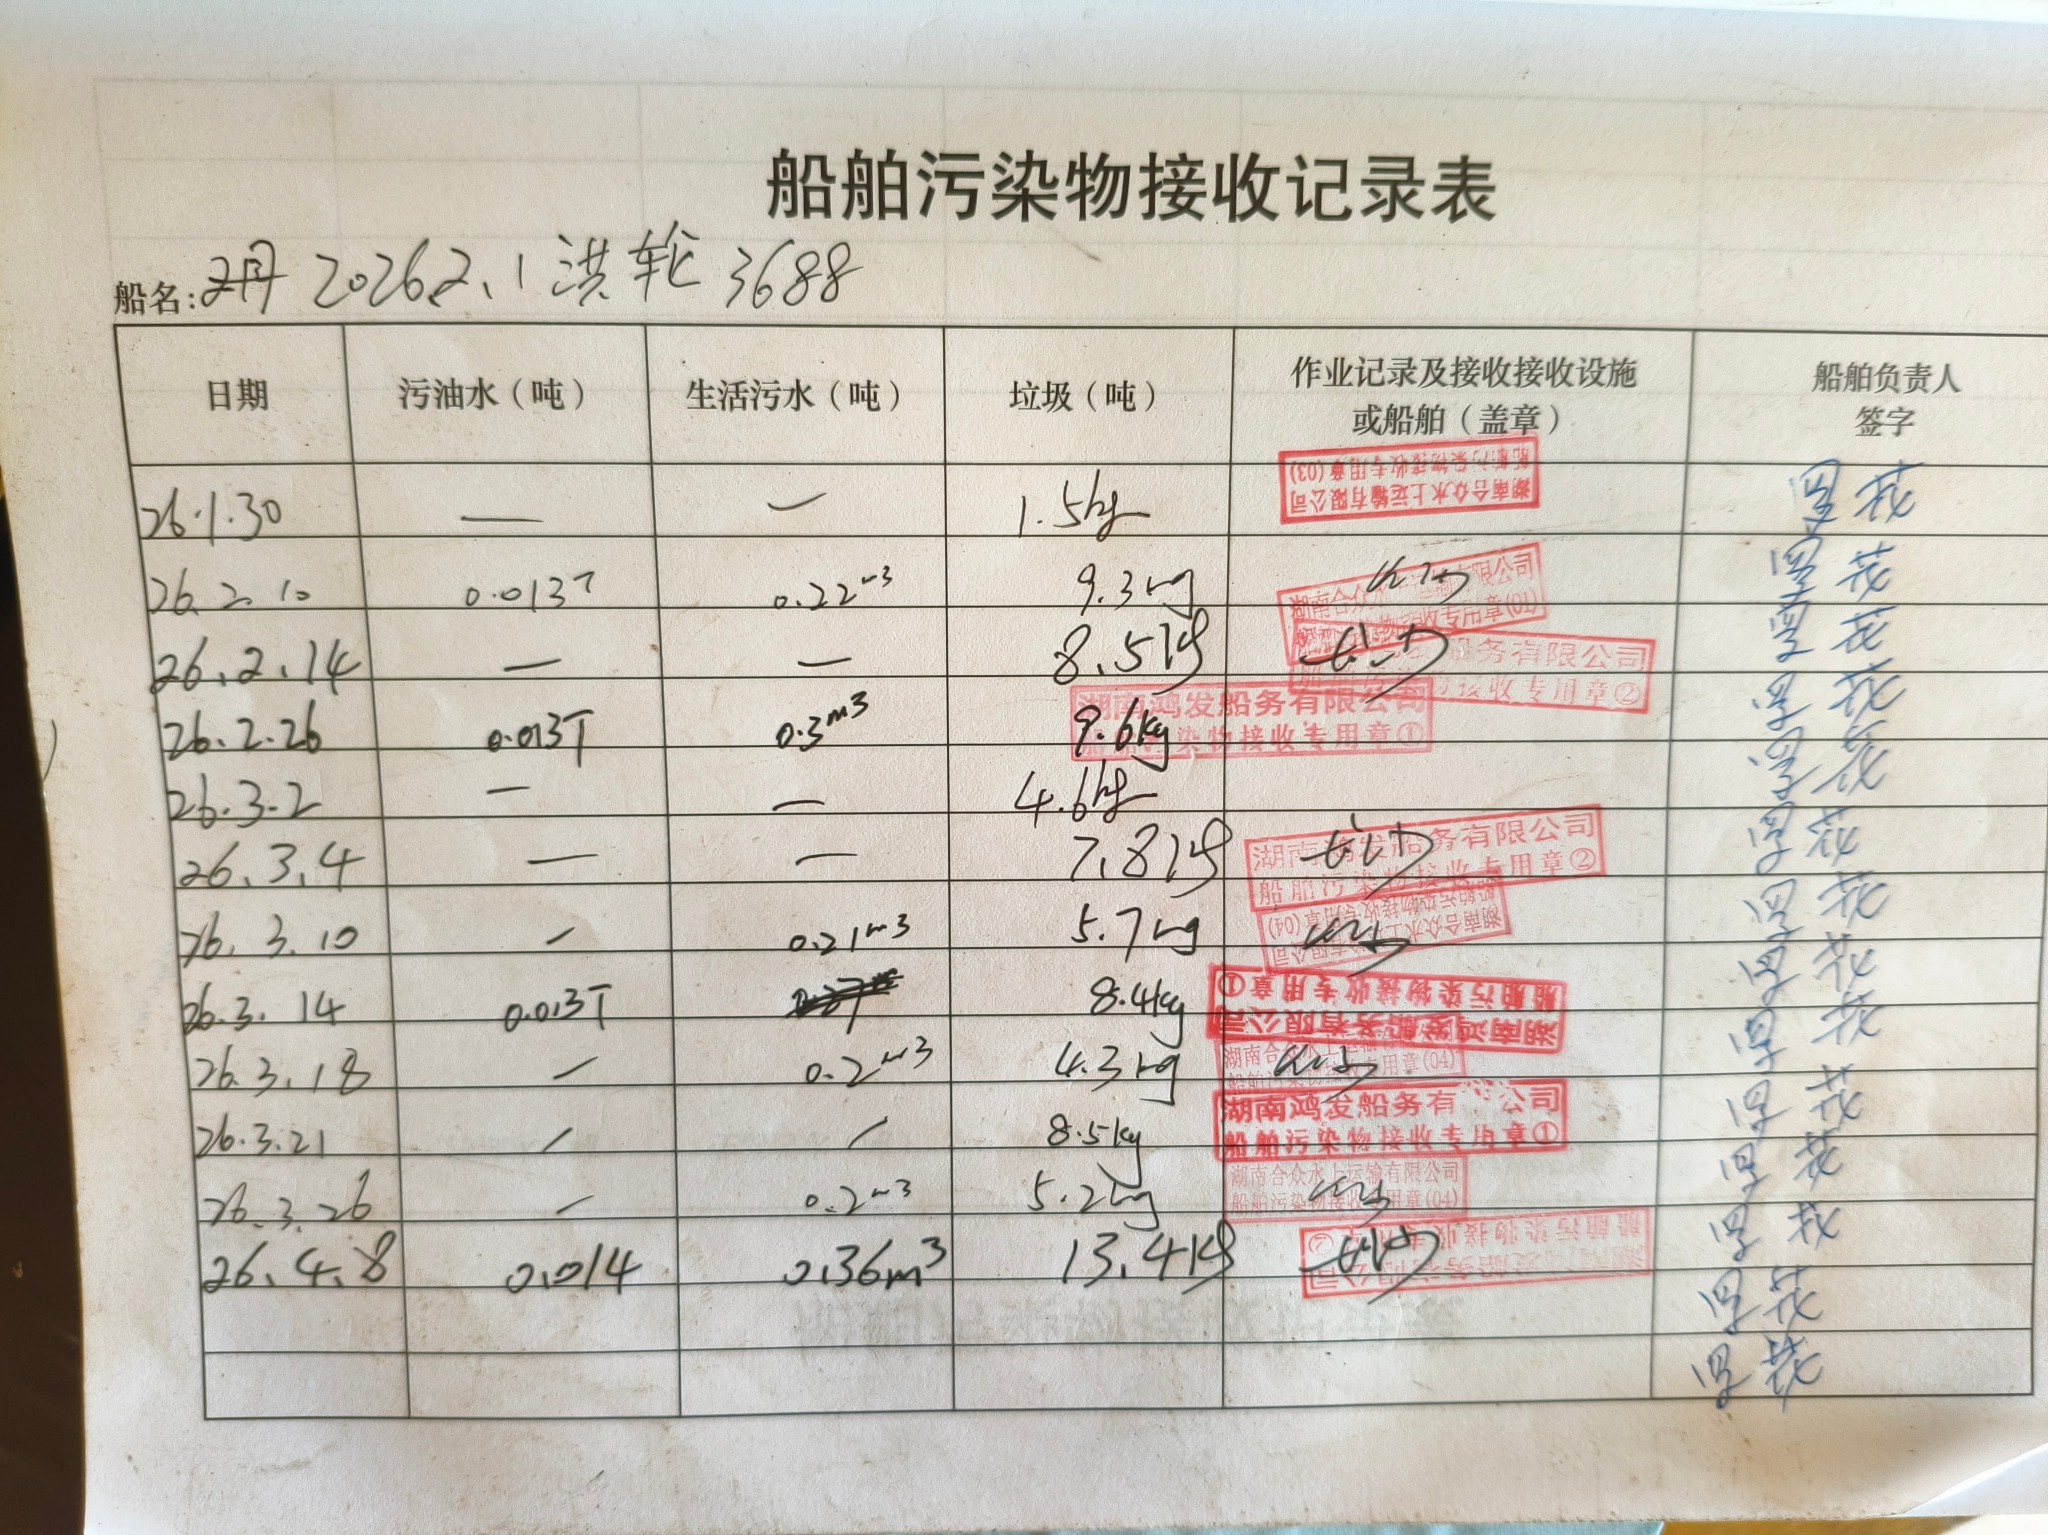 船舶污染物接收记录表
船名: 2026.2.1 洪轮 3688
日期 污油水（吨） 生活污水（吨） 垃圾（吨） 作业记录及接收接收设施或船舶（盖章） 船舶负责人签字
26.1.30 — — 1.5kg 湖南合众水上运输有限公司 船舶污染物接收专用章(03)
26.2.10 0.013T 0.22m3 9.3kg 湖南合众 有限公司 专用章(01)
26.2.14 — — 8.5kg 务有限公司 接收专用章②
26.2.26 0.013T 0.3m3 9.6kg 湖南鸿发船务有限公司 船舶污染物接收专用章①
26.3.2 — — 4.6kg
26.3.4 — — 7.8kg 湖南 务有限公司 船舶污染物接收专用章②
26.3.10 / 0.21m3 5.7kg 湖南合众水上 有限公司 船舶污染物接收专用章(04)
26.3.14 0.013T 8.4kg 湖南鸿发船务有限公司 船舶污染物接收专用章①
26.3.18 / 0.2m3 4.3kg 湖南合众水上运输 用章(04)
26.3.21 / / 8.5kg 湖南鸿发船务有 公司 船舶污染物接收专用章①
26.3.26 / 0.2m3 5.2kg 湖南合众水上运输有限公司 船舶污染物接收专用章(04)
26.4.8 0.014 0.36m3 13.4kg 船舶污染物接收专用章②